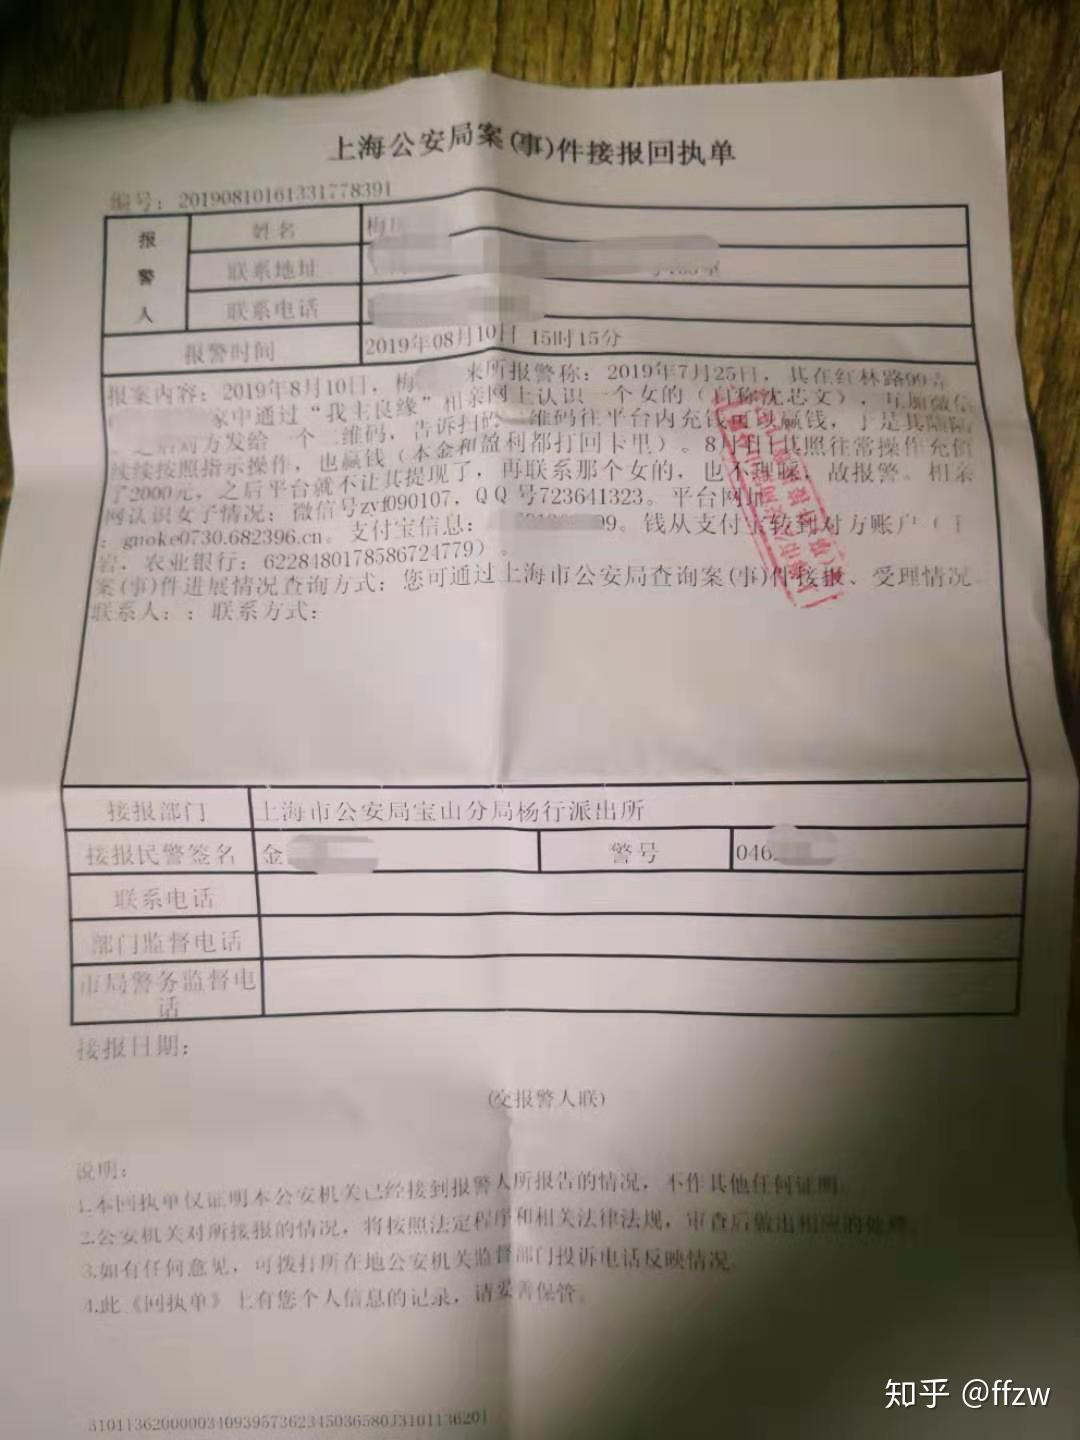 上海公安局案(事)件接报回执单
编号: 20190810161331778391
报警人
姓名 梅
联系地址
联系电话
报警时间 2019年08月10日 15时15分
报案内容: 2019年8月10日, 梅 来所报警称: 2019年7月25日, 其在红林路99弄
家中通过“我主良缘”相亲网上认识一个女的(自称沈芯文), 互加微信
, 之后对方发给一个二维码, 告诉扫码二维码往平台内充钱可以赢钱, 于是其陆陆
续续按照指示操作, 也赢钱(本金和盈利都打回卡里)。8月 日其照往常操作充值
了2000元, 之后平台就不让其提现了, 再联系那个女的, 也不理睬, 故报警。相亲
网认识女子情况: 微信号zyf090107, QQ号723641323。平台网址
: gnoke0730.682396.cn。支付宝信息: 9。钱从支付宝转到对方账户(
岩, 农业银行: 6228480178586724779)。
案(事)件进展情况查询方式: 您可通过上海市公安局查询案(事)件接报、受理情况
联系人: : 联系方式:
接报部门 上海市公安局宝山分局杨行派出所
接报民警签名 金 警号 046
联系电话
部门监督电话
市局警务监督电
话
接报日期:
(交报警人联)
说明:
1.本回执单仅证明本公安机关已经接到报警人所报告的情况, 不作其他任何证明
2.公安机关对所接报的情况, 将按照法定程序和相关法律法规, 审查后做出相应的处理。
3.如有任何意见, 可拨打所在地公安机关监督部门投诉电话反映情况
4.此《回执单》上有您个人信息的记录, 请妥善保管。
知乎 @ffzw